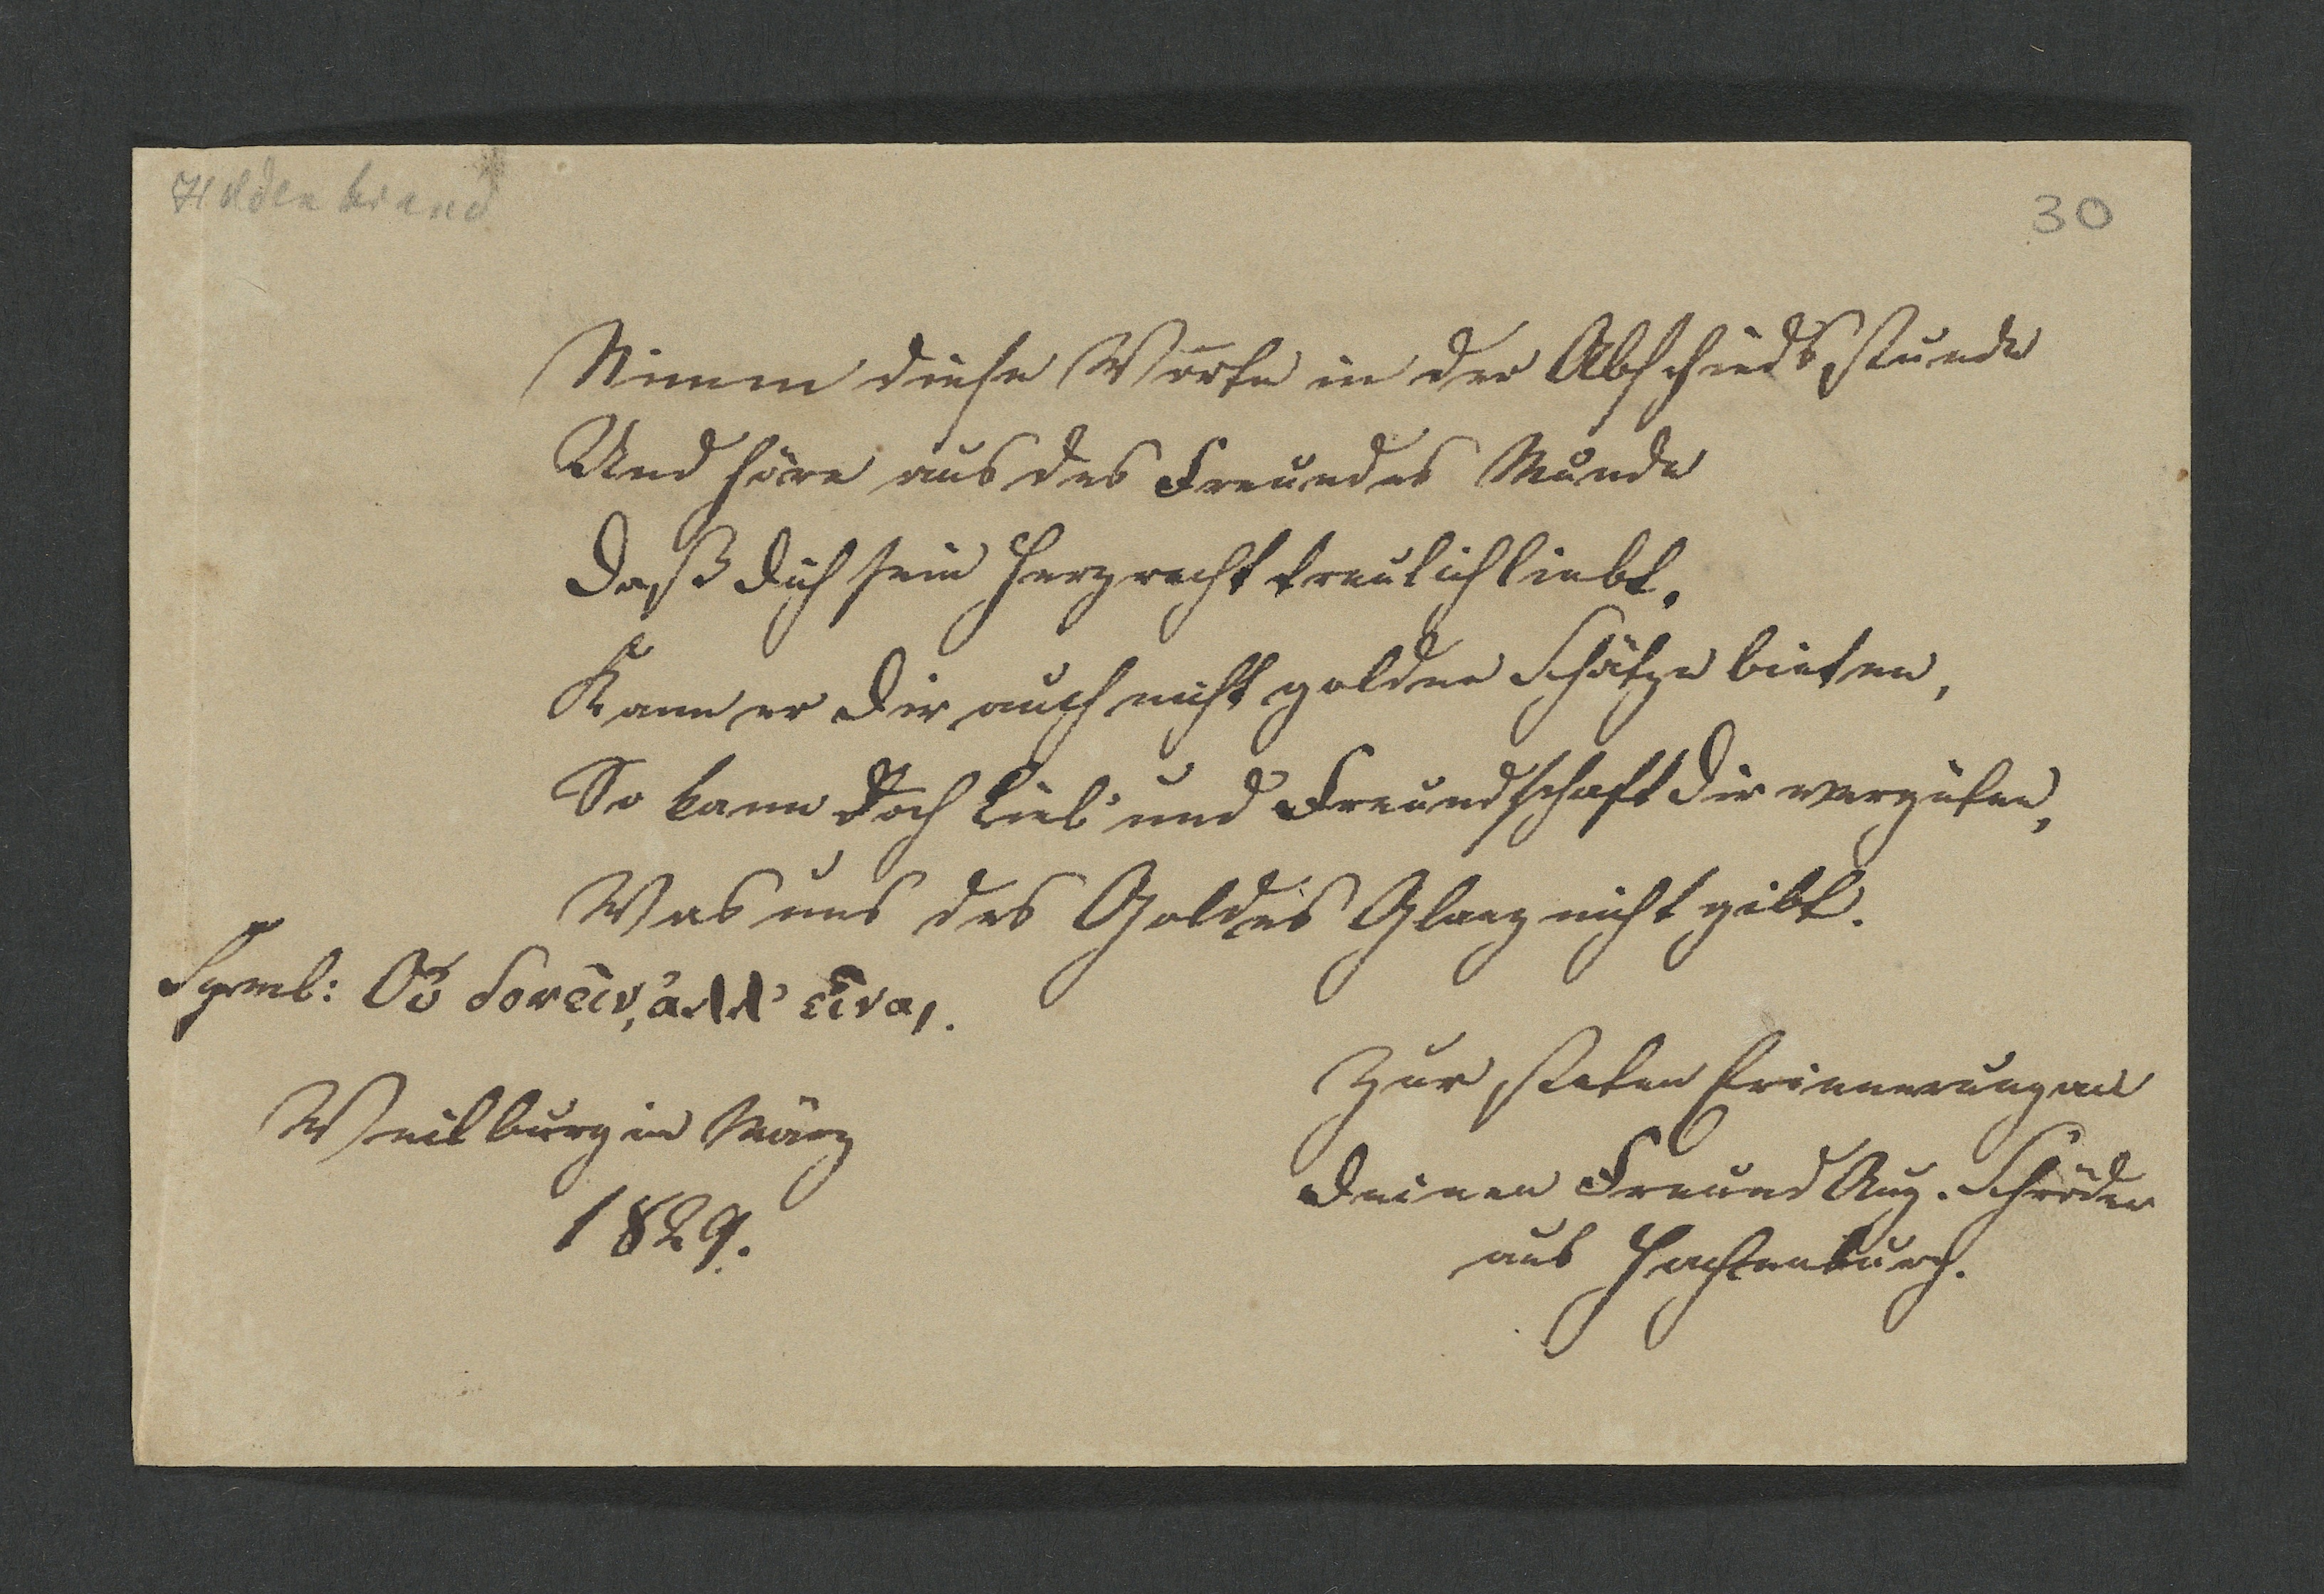 Hildenbrand
30
Nimm diese Worte in der Abschiedsstunde
Und höre aus des Freundes Munde
Daß dich sein Herz recht treulich liebt,
Kann er dir auch nicht goldne Schätze bieten,
So kann doch Lieb' und Freundschaft dir vergüten,
Was uns des Goldes Glanz nicht gibt.
Symb: Οὐ δοκεῖν, ἀλλ' εἶναι.
Weilburg im März
1829.
Zur steten Erinnerung an
deinen Freund Aug. Schröder
aus Hachenburg.